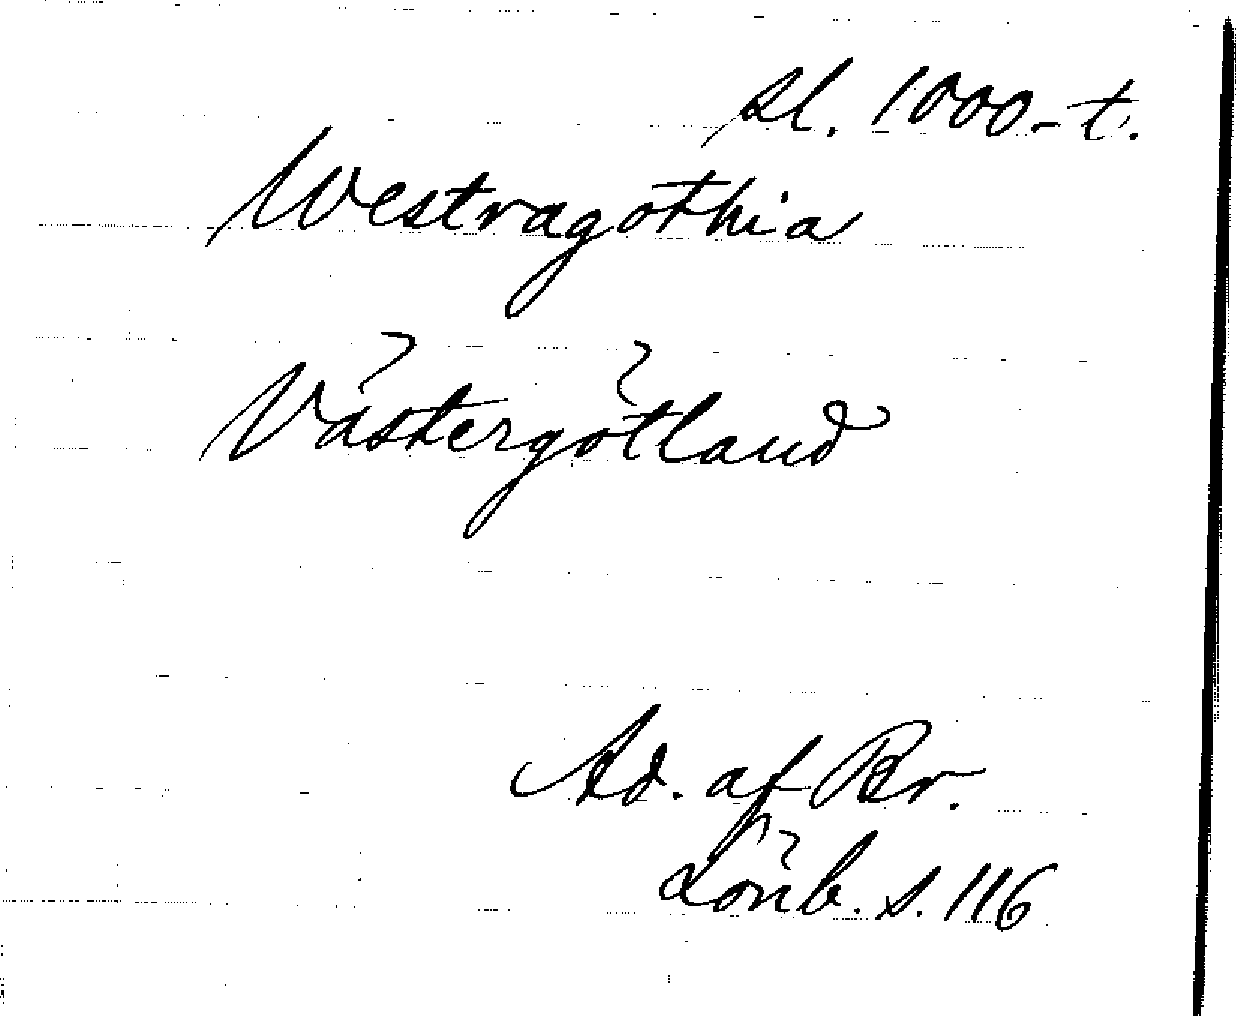 sl. 1000-t.
Westragothia
Västergötland
Ad. af Br.
Lönb. s. 116